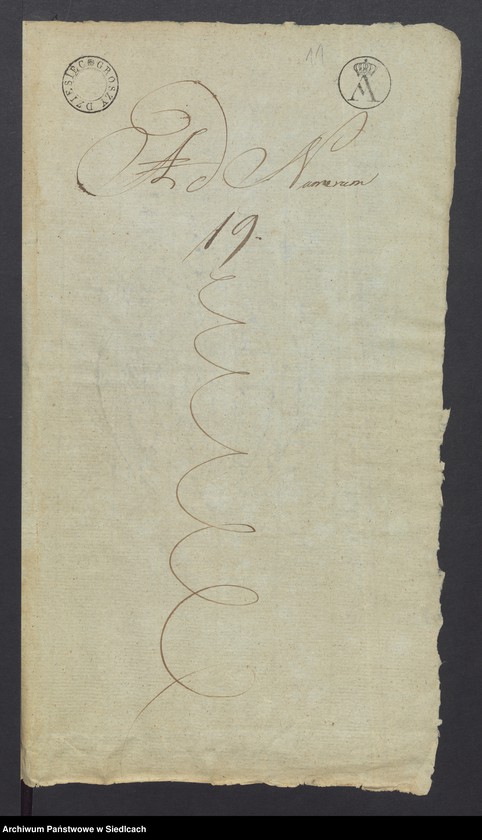 DZIESIĘC GROSZY
11
A
Ad Numerum
19.
Archiwum Państwowe w Siedlcach